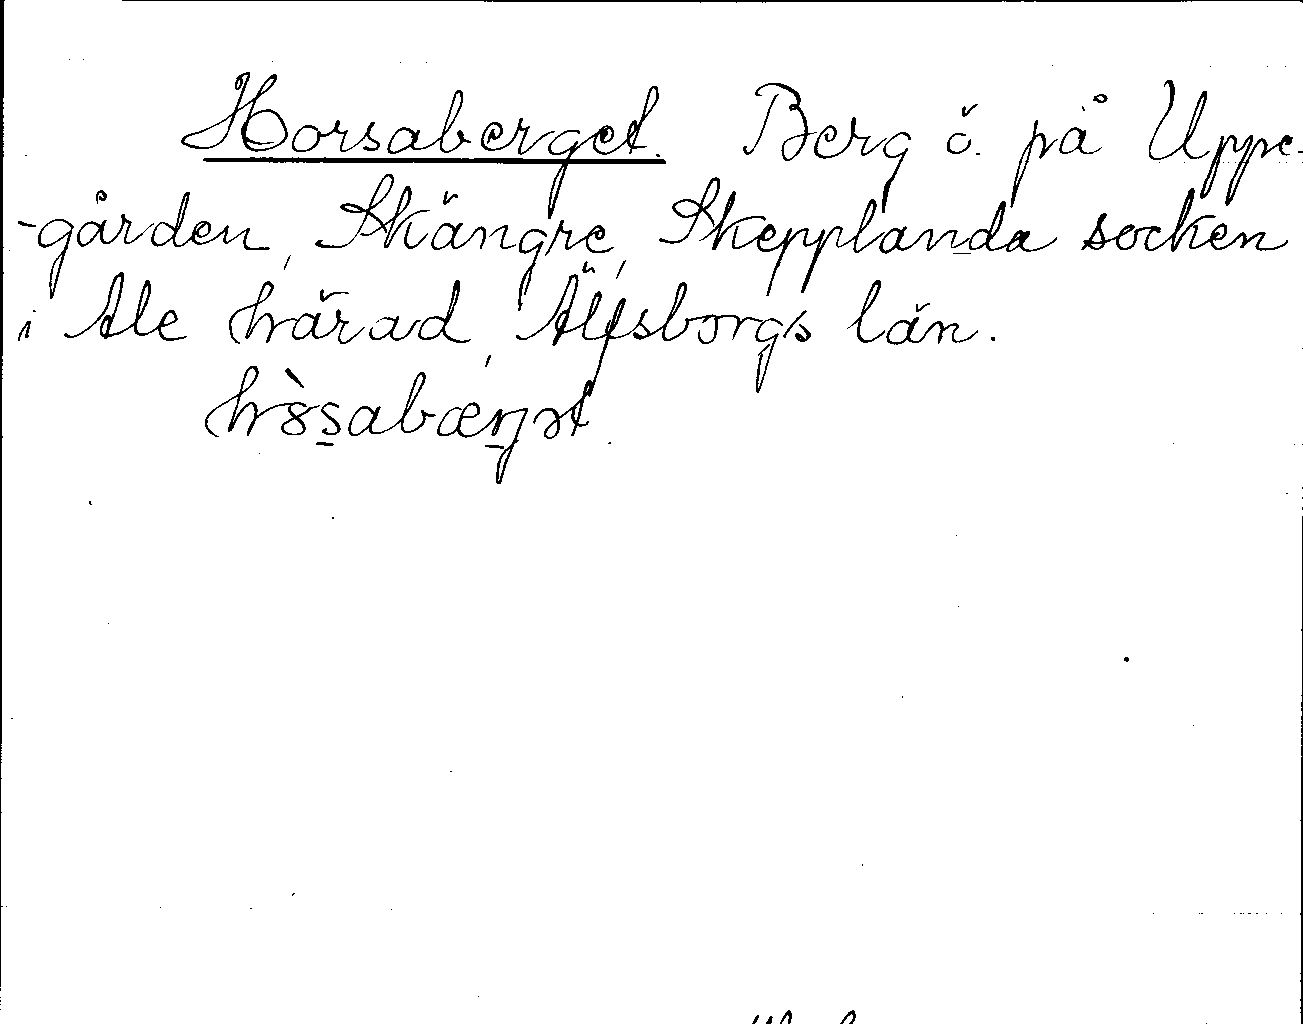 Horsaberget. Berg ö. på Uppe-
-gården, Skängre, Skepplanda socken
i Ale härad, Älfsborgs län.